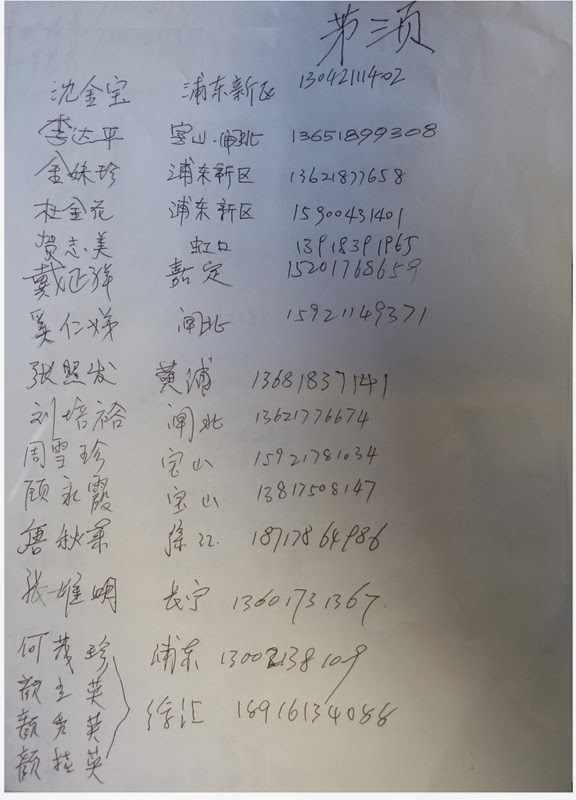 第三页
沈金宝 浦东新区 13042111402
李达平 宝山.闸北 13651899308
金妹珍 浦东新区 13621877658
杜金花 浦东新区 15900431401
贺志美 虹口 13918391965
戴正祥 嘉定 15201768659
奚仁娣 闸北 15921149371
张照发 黄浦 13681837141
刘培裕 闸北 13621776674
周雪珍 宝山 15921781034
顾永霞 宝山 13817508147
唐秋 徐汇 18717864986
张维明 长宁 13601731367
何茂珍 浦东 13002138109
颜立英
颜秀英 徐汇 18916134088
颜桂英